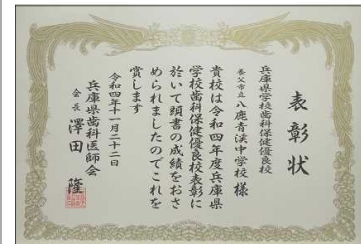 表彰状
兵庫県学校歯科保健優良校
養父市立八鹿青渓中学校様
貴校は令和四年度兵庫県
学校歯科保健優良校表彰に
於いて頭書の成績をおさ
められましたのでこれを
賞します
令和四年十一月二十二日
兵庫県歯科医師会
会長 澤田 隆